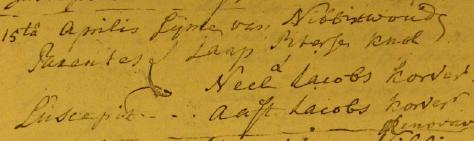 15ta Aprilis Sijme van Nibbixwoud
Parentes { Jaap Pieterse Knol
Neelt Jacobs Korver
Suscepit . . . Aaft Jacobs Korver